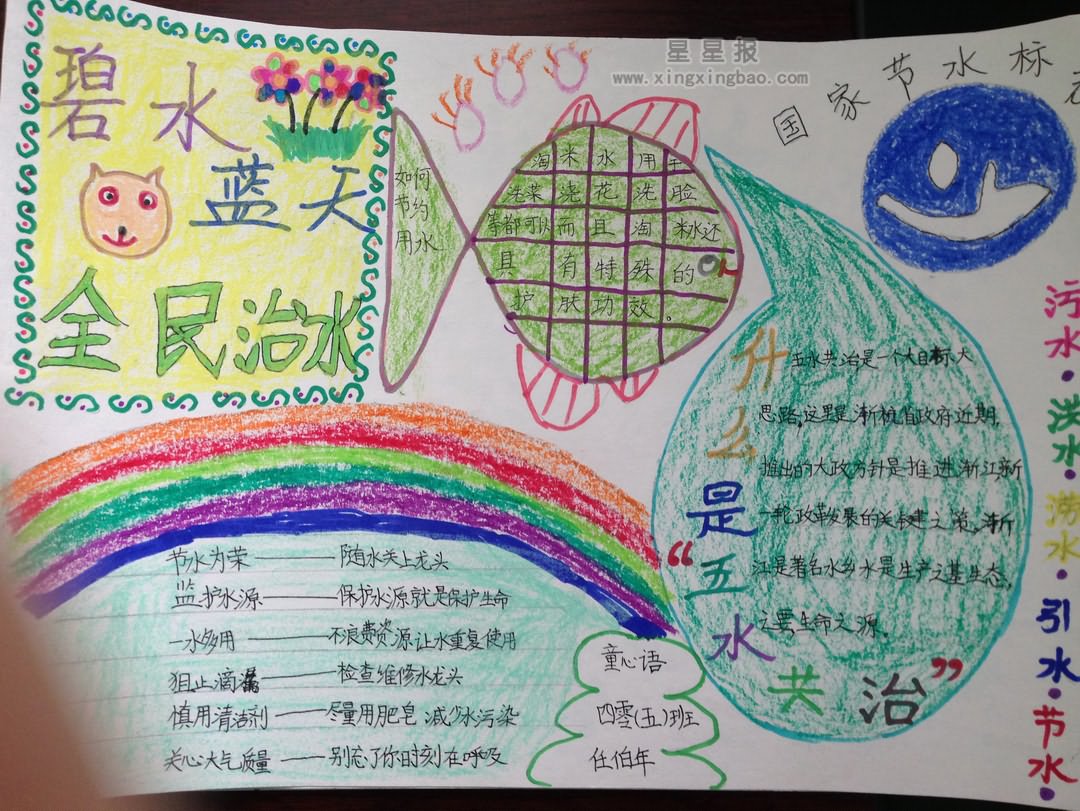 碧水
蓝天
全民治水
如何
节约
用水
淘米水用车
洗菜浇花洗脸
等都可以而且淘米水还
具有特殊的
护肤功效。
星星报
www.xingxingbao.com
国家节水标志
什么是“五水共治”
五水共治是一个大目标大
思路,这里是浙杭省政府近期,
推出的大政方针是推进浙江新
一轮改革发展的关建之策,浙
江是著名水乡水是生产之基生态,
之要生命之源.
污水·洪水·涝水·引水·节水·
节水为荣——随水关上龙头
监护水源——保护水源就是保护生命
一水多用——不浪费资源让水重复使用
狙止滴漏——检查维修水龙头
慎用清洁剂——尽量用肥皂减少水污染
关心大气质量——别忘了你时刻在呼吸
童心语
四零(五)班
任伯年